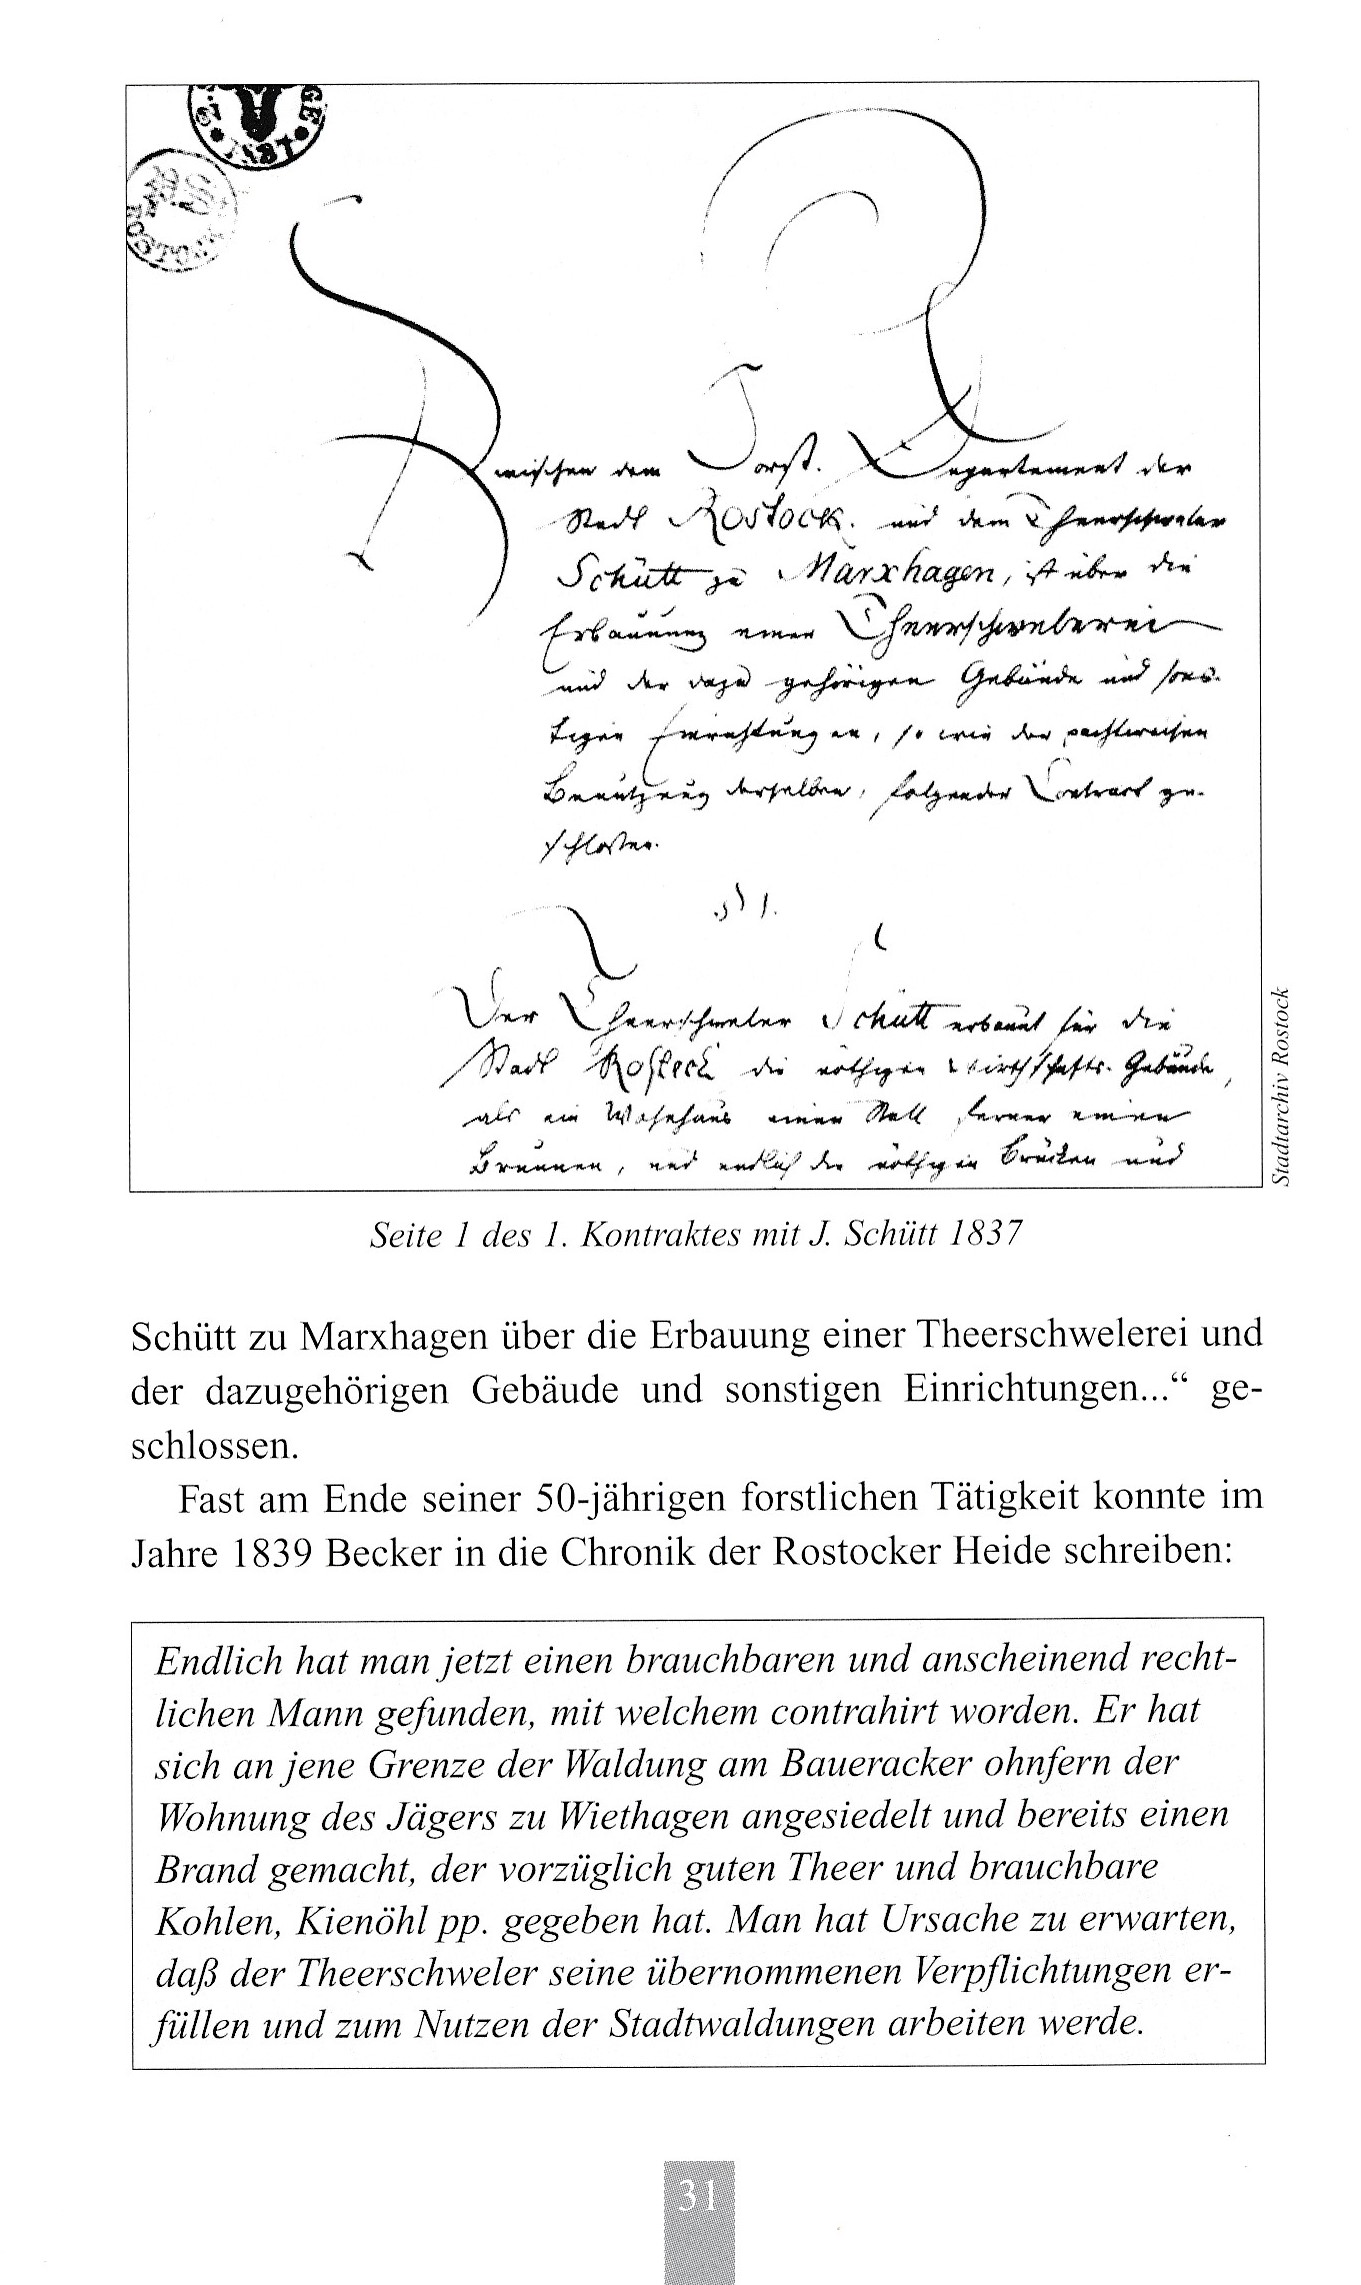 1837
ROSTOCK
Zwischen dem Forst. Departement der
Stadt Rostock. und dem Theerschweler
Schütt zu Marxhagen, ist über die
Erbauung einer Theerschwelerei
und der dazu gehörigen Gebäude und sons-
tigen Einrichtungen, so wie der pachtweisen
Benutzung derselben, folgender Contract ge-
schlossen.
§ 1.
Der Theerschweler Schütt erbauet für die
Stadt Rostock die nöthigen Wirthschafts-Gebäude,
als ein Wohnhaus einen Stall ferner einen
Brunnen, und endlich die nöthigen Brücken und
Stadtarchiv Rostock
Seite 1 des 1. Kontraktes mit J. Schütt 1837
Schütt zu Marxhagen über die Erbauung einer Theerschwelerei und
der dazugehörigen Gebäude und sonstigen Einrichtungen...“ ge-
schlossen.
Fast am Ende seiner 50-jährigen forstlichen Tätigkeit konnte im
Jahre 1839 Becker in die Chronik der Rostocker Heide schreiben:
Endlich hat man jetzt einen brauchbaren und anscheinend recht-
lichen Mann gefunden, mit welchem contrahirt worden. Er hat
sich an jene Grenze der Waldung am Baueracker ohnfern der
Wohnung des Jägers zu Wiethagen angesiedelt und bereits einen
Brand gemacht, der vorzüglich guten Theer und brauchbare
Kohlen, Kienöhl pp. gegeben hat. Man hat Ursache zu erwarten,
daß der Theerschweler seine übernommenen Verpflichtungen er-
füllen und zum Nutzen der Stadtwaldungen arbeiten werde.
31